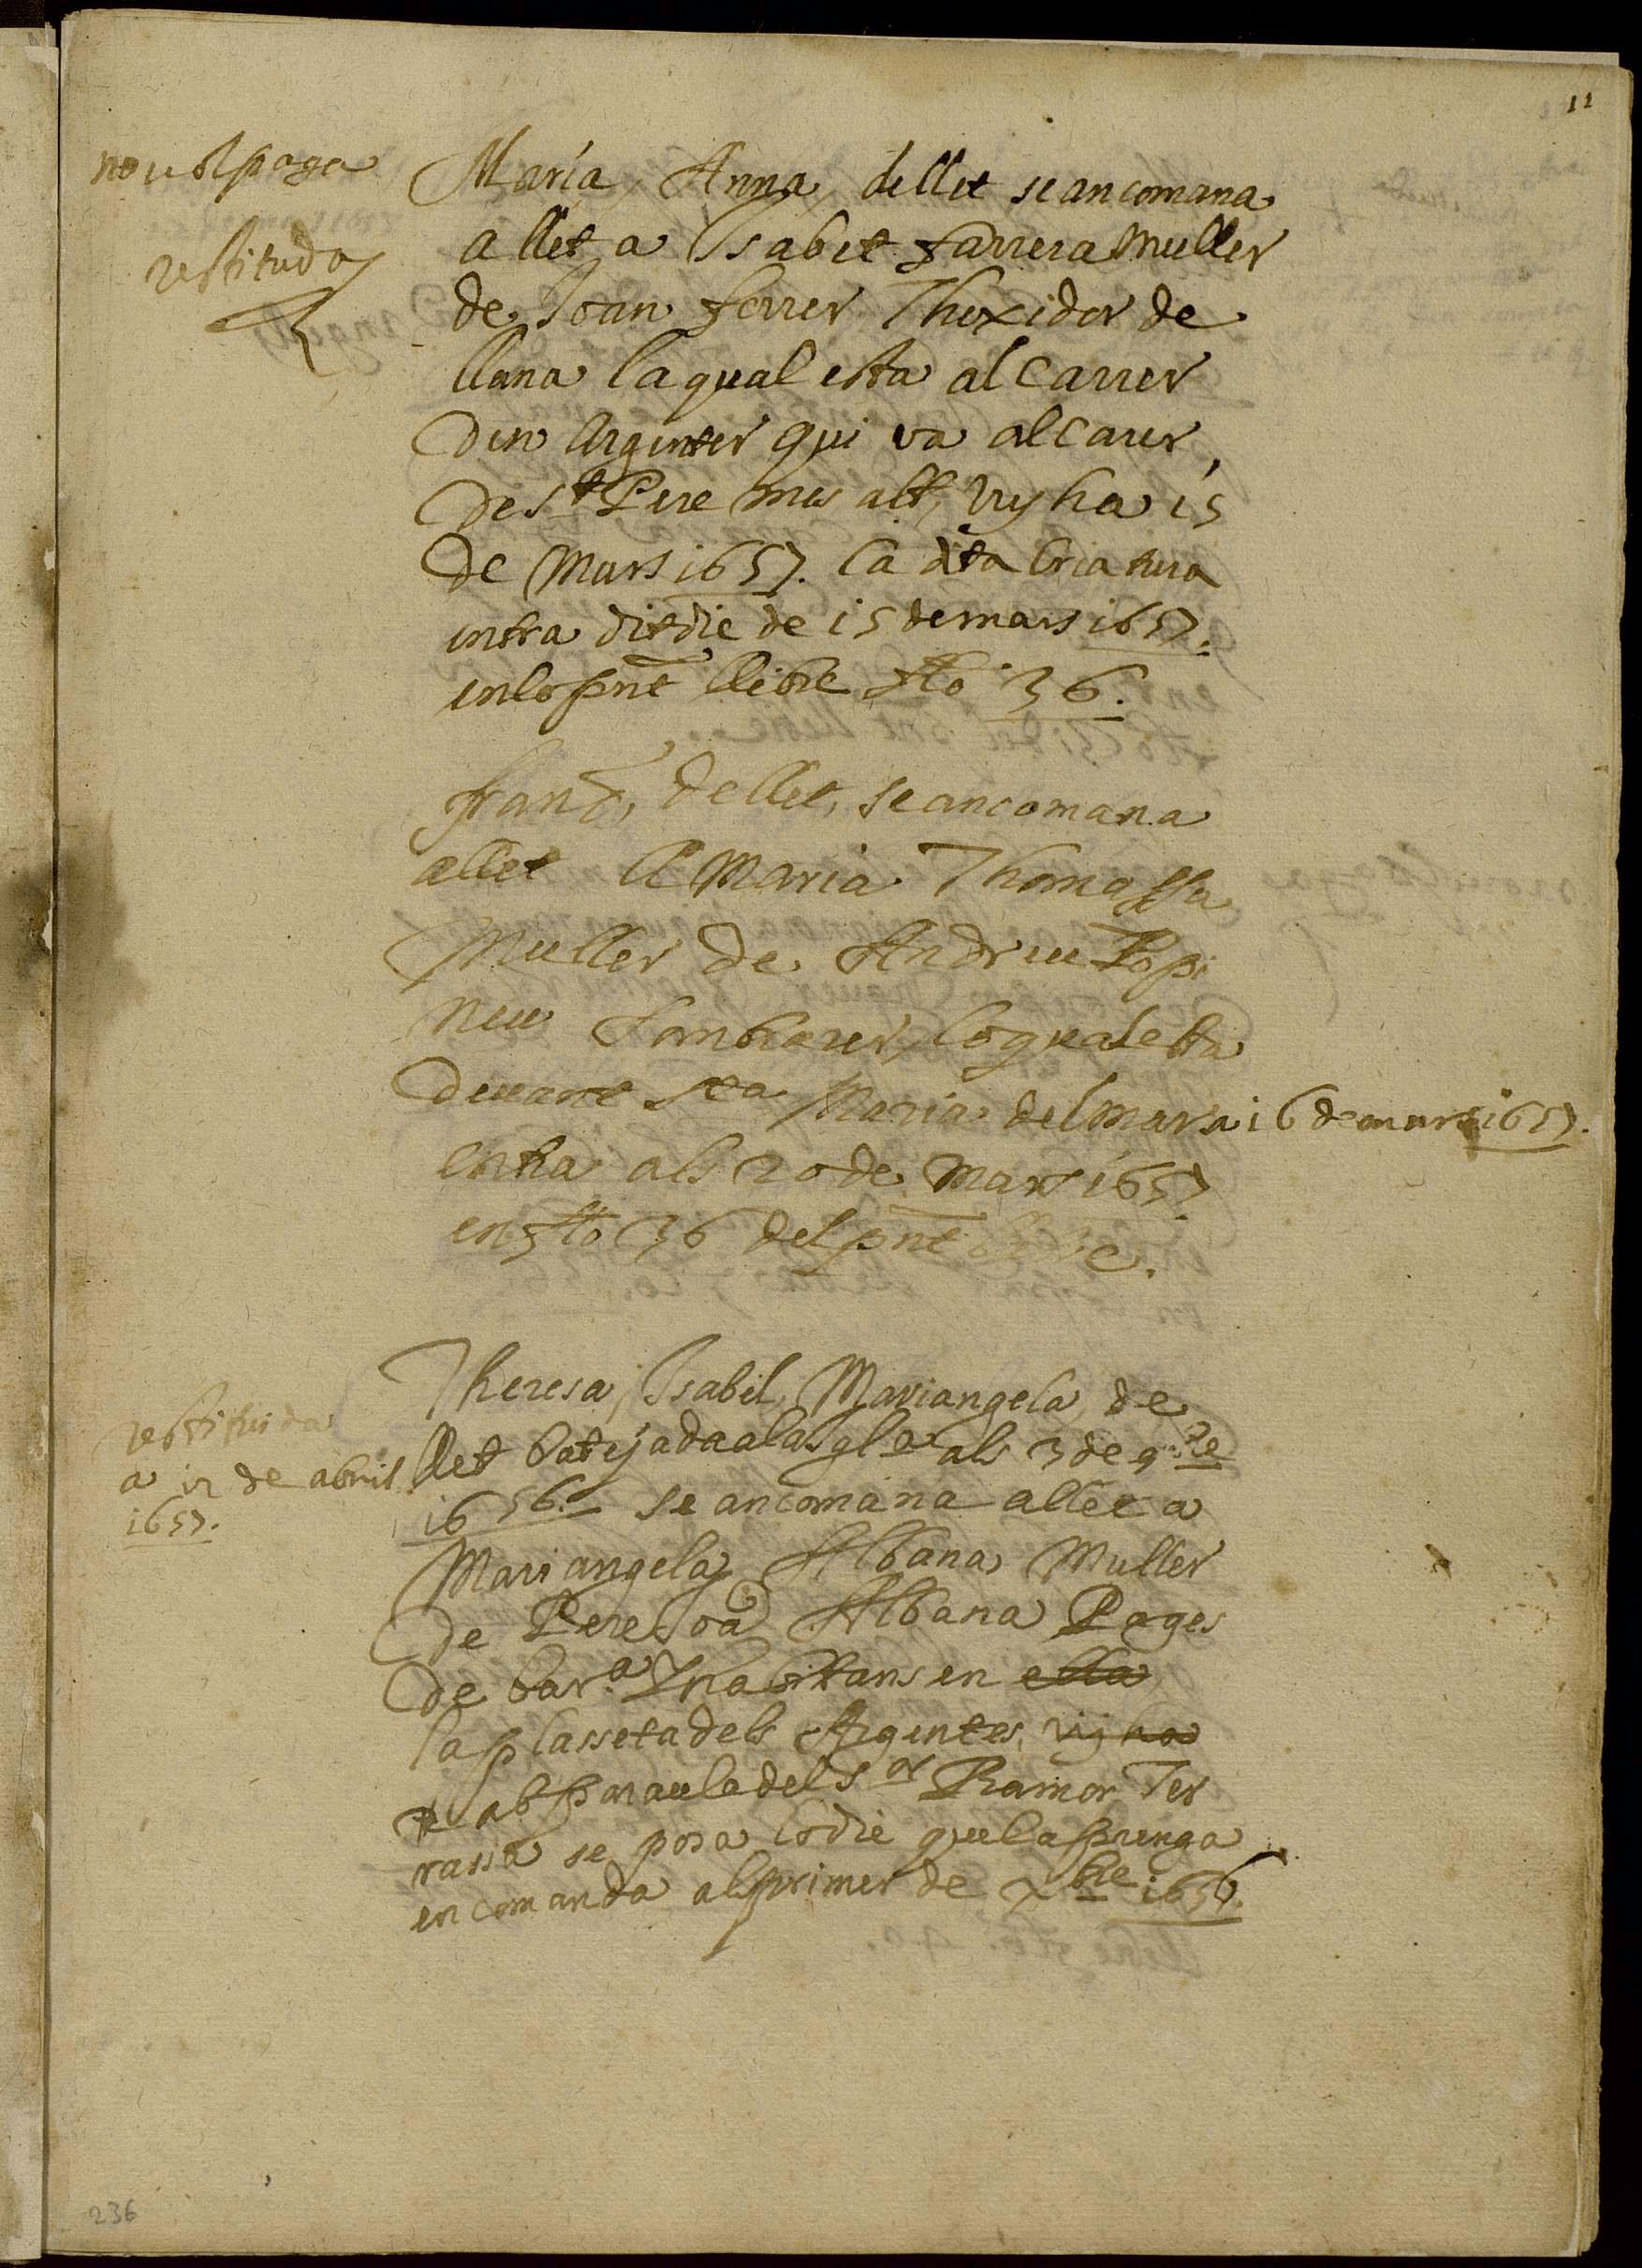 11
no vol paga
restituda
Maria, Anna, de llet se ancomana
a llet a Isabet farrera muller
de Joan ferrer Thexidor de
llana la qual esta al Carrer
den Argenter qui va al Carer
de St Pere mes alt, vuy ha 15
de Mars 1657. la dta Criatura
entra dit die de 15 de mars 1657.
en lo pnt llibre fto 36.
franc, de llet, se ancomana
a llet A Maria Thomassa
Muller de Andreu Popi
neu Sombrarer, lo qual esta
devant Sta Maria del mar a 16 de mars 1657.
entra als 20 de Mars 1657
en fto 36 del pnt llibre.
restituida
a 12 de abril
1657.
Theresa, Isabel, Mariangela, de
llet batejada a la Sgla als 3 de 9bre
1656. se ancomana a llet a
Mariangela Albana Muller
de Pere Joa Albana Pages
de Bara Yhabitans en ella
la plasseta dels Argentes, vuy ha
ab paraula del Sor Ramon Ter
rassa se posa lo die que la prenga
encomanda al primer de xbre 1656.
236